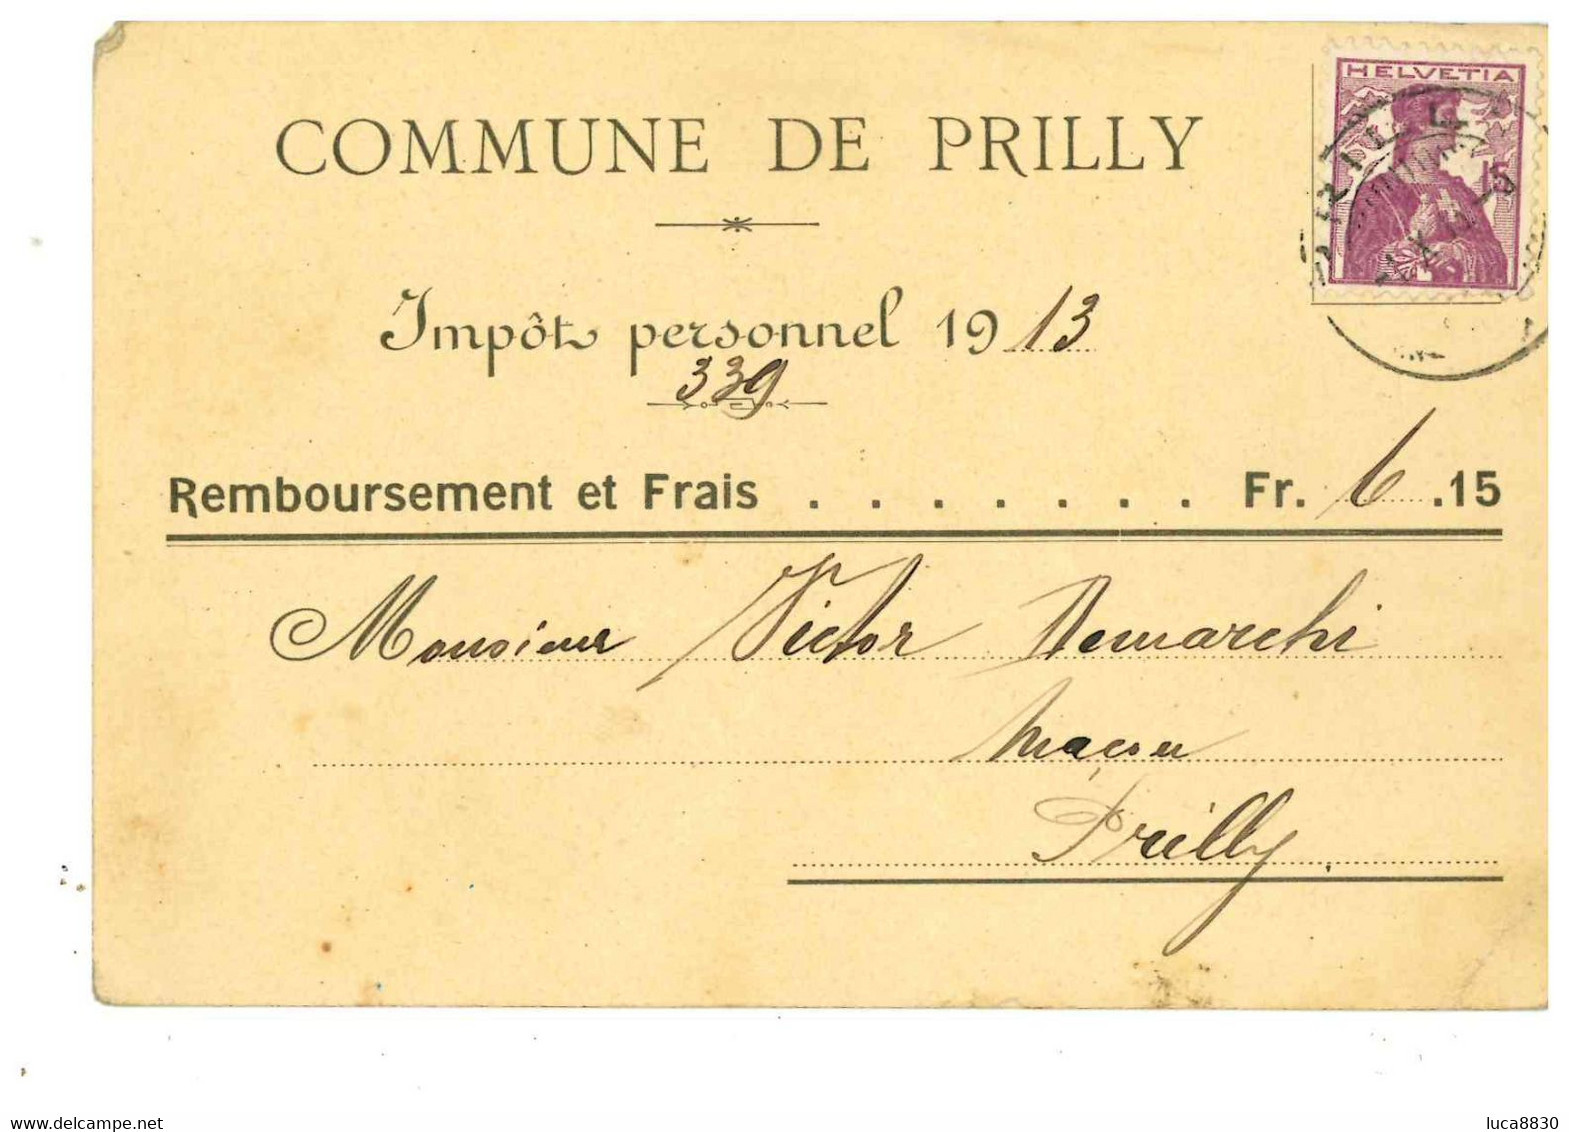 COMMUNE DE PRILLY
HELVETIA
15
PRILLY
Impôt personnel 1913
339
Remboursement et Frais . . . . . . . Fr. 6.15
Monsieur Victor Demarchi
maçon
Prilly
luca8830